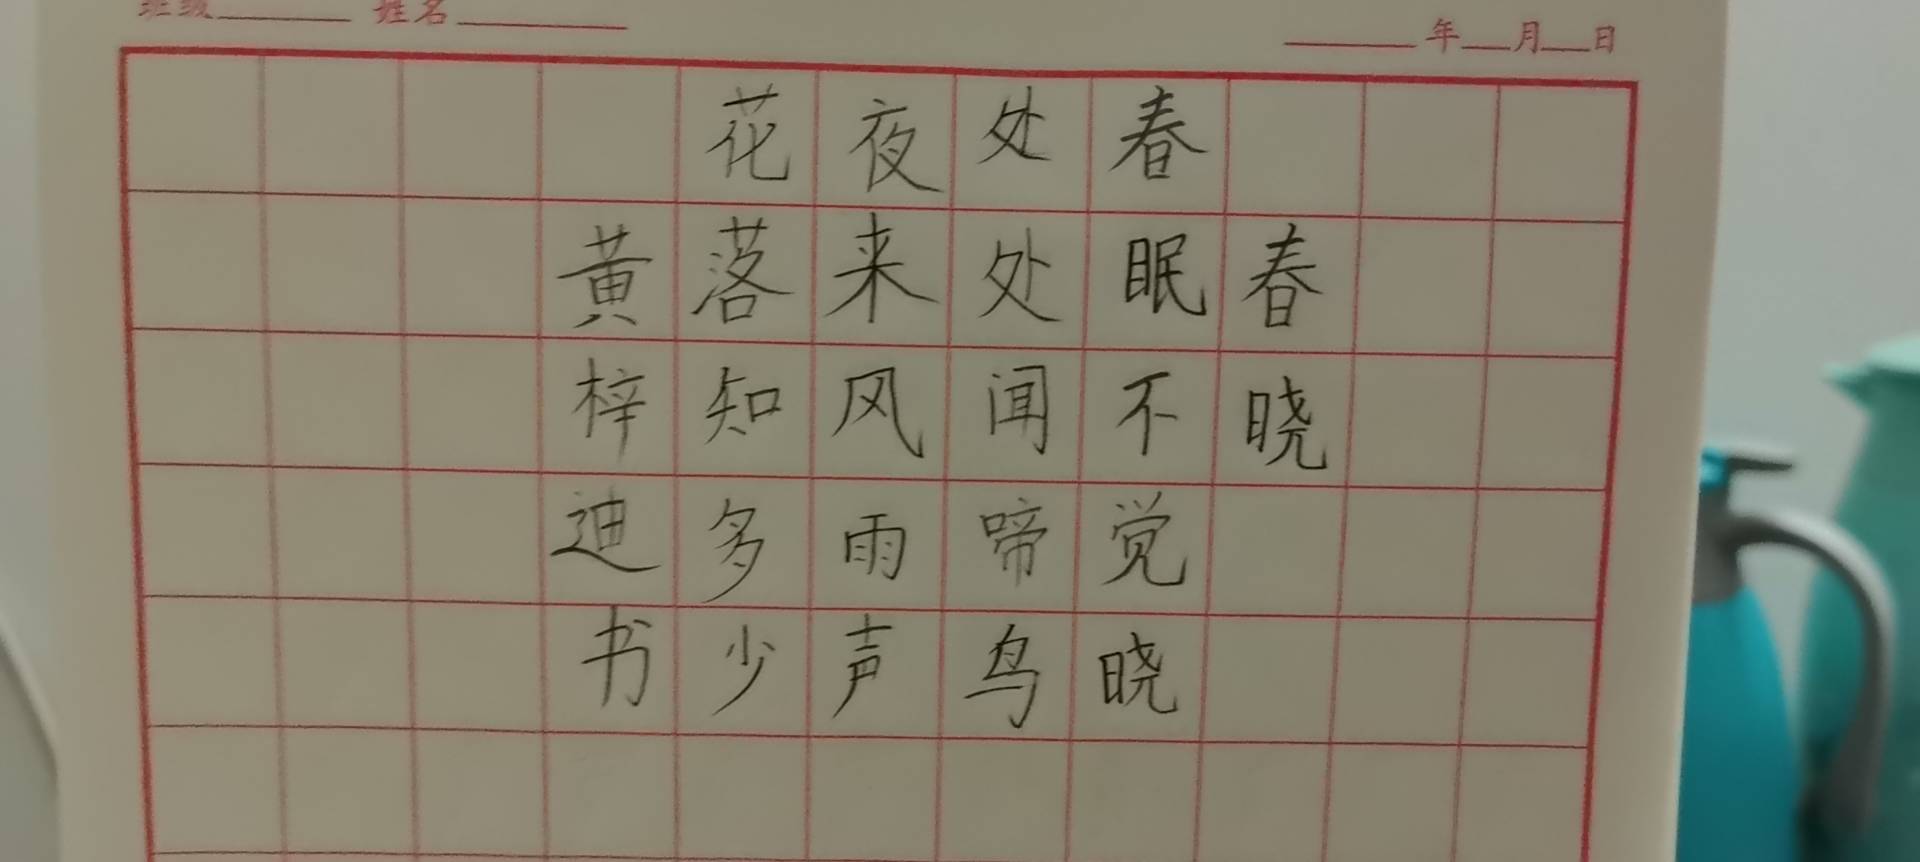 班级 姓名
年 月 日
春晓
春眠不觉晓
处处闻啼鸟
夜来风雨声
花落知多少
黄梓迪书